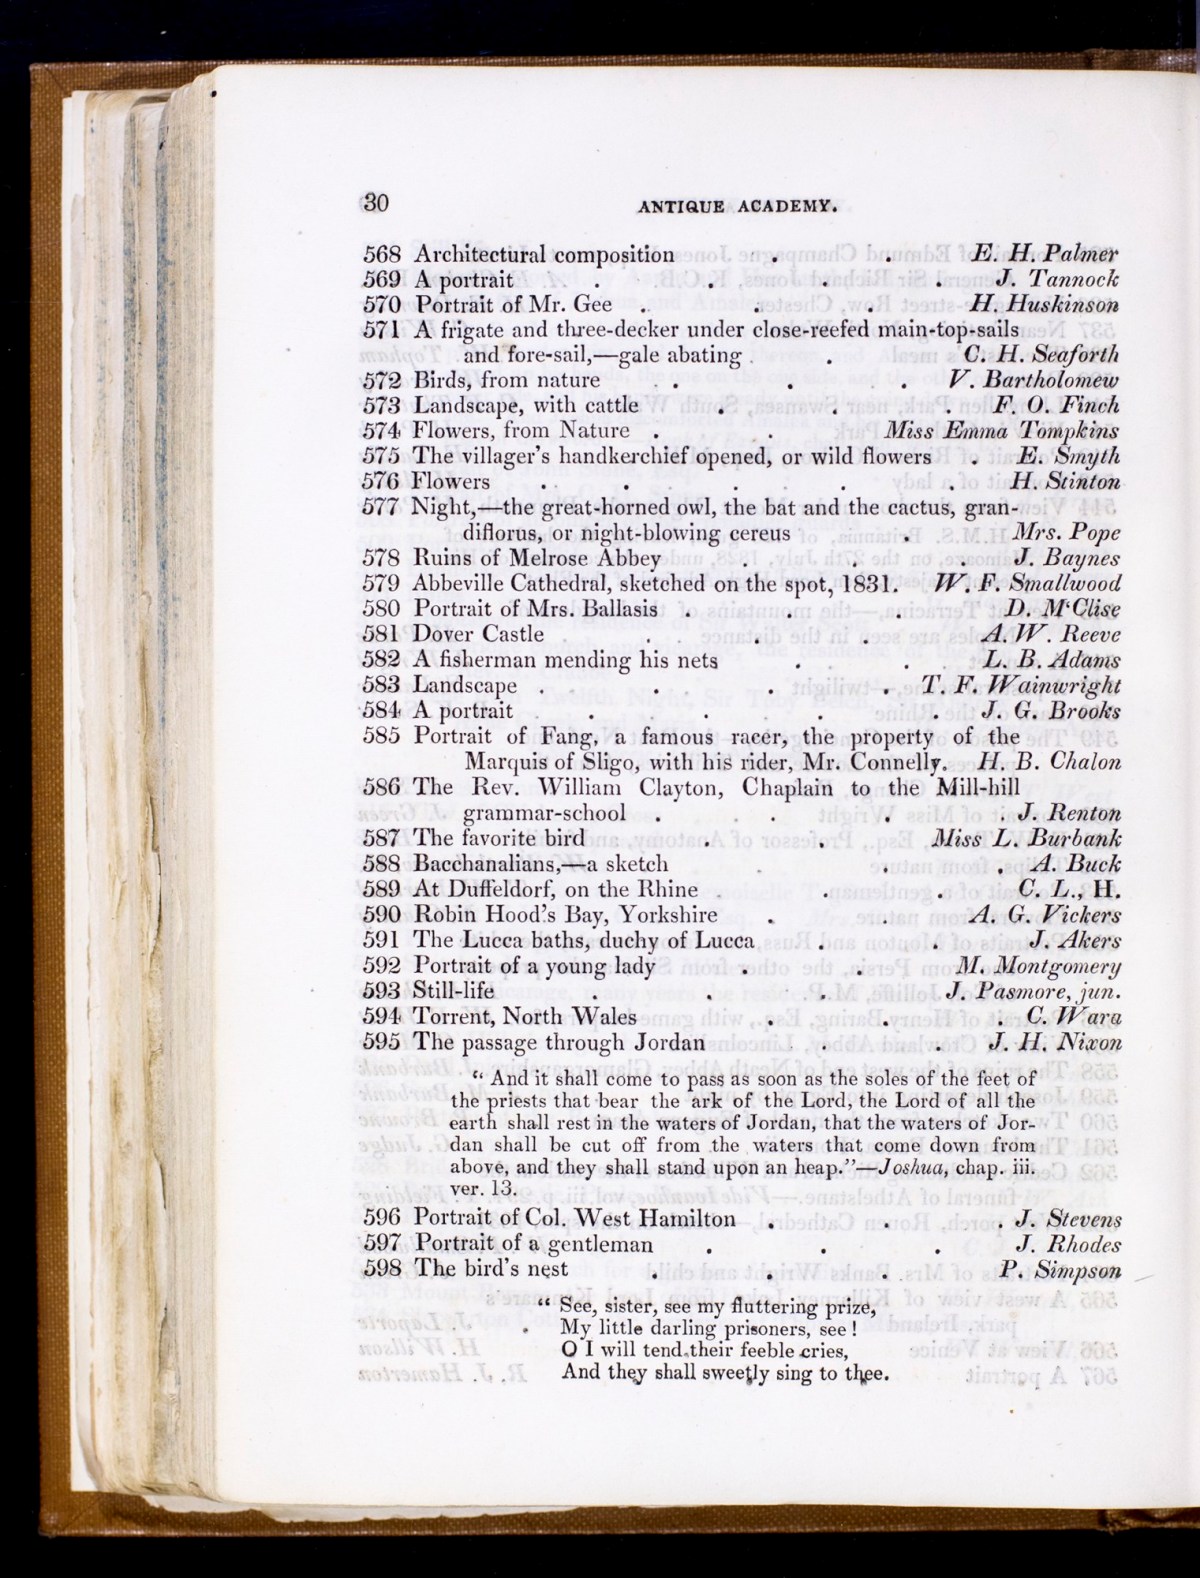 30 ANTIQUE ACADEMY.
568 Architectural composition . . E. H. Palmer
569 A portrait . . . . J. Tannock
570 Portrait of Mr. Gee . . . H. Huskinson
571 A frigate and three-decker under close-reefed main-top-sails
and fore-sail,—gale abating . . C. H. Seaforth
572 Birds, from nature . . . V. Bartholomew
573 Landscape, with cattle . . . F. O. Finch
574 Flowers, from Nature . . Miss Emma Tompkins
575 The villager's handkerchief opened, or wild flowers . E. Smyth
576 Flowers . . . . . H. Stinton
577 Night,—the great-horned owl, the bat and the cactus, gran-
diflorus, or night-blowing cereus . Mrs. Pope
578 Ruins of Melrose Abbey . . . J. Baynes
579 Abbeville Cathedral, sketched on the spot, 1831. W. F. Smallwood
580 Portrait of Mrs. Ballasis . . . D. M'Clise
581 Dover Castle . . . A. W. Reeve
582 A fisherman mending his nets . . L. B. Adams
583 Landscape . . . . T. F. Wainwright
584 A portrait . . . . J. G. Brooks
585 Portrait of Fang, a famous racer, the property of the
Marquis of Sligo, with his rider, Mr. Connelly. H. B. Chalon
586 The Rev. William Clayton, Chaplain to the Mill-hill
grammar-school . . . . J. Renton
587 The favorite bird . . Miss L. Burbank
588 Bacchanalians,—a sketch . . . A. Buck
589 At Duffeldorf, on the Rhine . . . C. L., H.
590 Robin Hood's Bay, Yorkshire . . A. G. Vickers
591 The Lucca baths, duchy of Lucca . . J. Akers
592 Portrait of a young lady . . M. Montgomery
593 Still-life . . . J. Pasmore, jun.
594 Torrent, North Wales . . . C. Wara
595 The passage through Jordan . . J. H. Nixon
“ And it shall come to pass as soon as the soles of the feet of
the priests that bear the ark of the Lord, the Lord of all the
earth shall rest in the waters of Jordan, that the waters of Jor-
dan shall be cut off from the waters that come down from
above, and they shall stand upon an heap.”—Joshua, chap. iii.
ver. 13.
596 Portrait of Col. West Hamilton . . . J. Stevens
597 Portrait of a gentleman . . . J. Rhodes
598 The bird's nest . . . . P. Simpson
“ See, sister, see my fluttering prize,
My little darling prisoners, see !
O I will tend their feeble cries,
And they shall sweetly sing to thee.